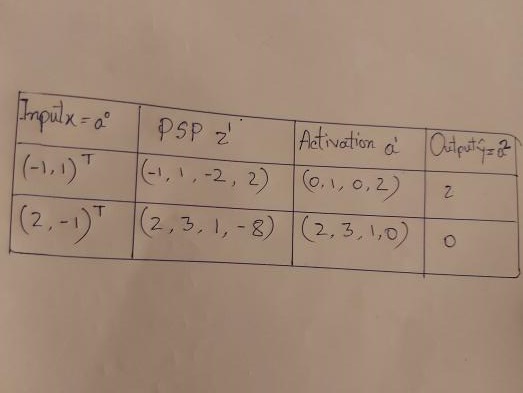 Input x = a⁰ PSP z¹ Activation a¹ Output ŷ = a²
(-1, 1)ᵀ (-1, 1, -2, 2) (0, 1, 0, 2) 2
(2, -1)ᵀ (2, 3, 1, -8) (2, 3, 1, 0) 0